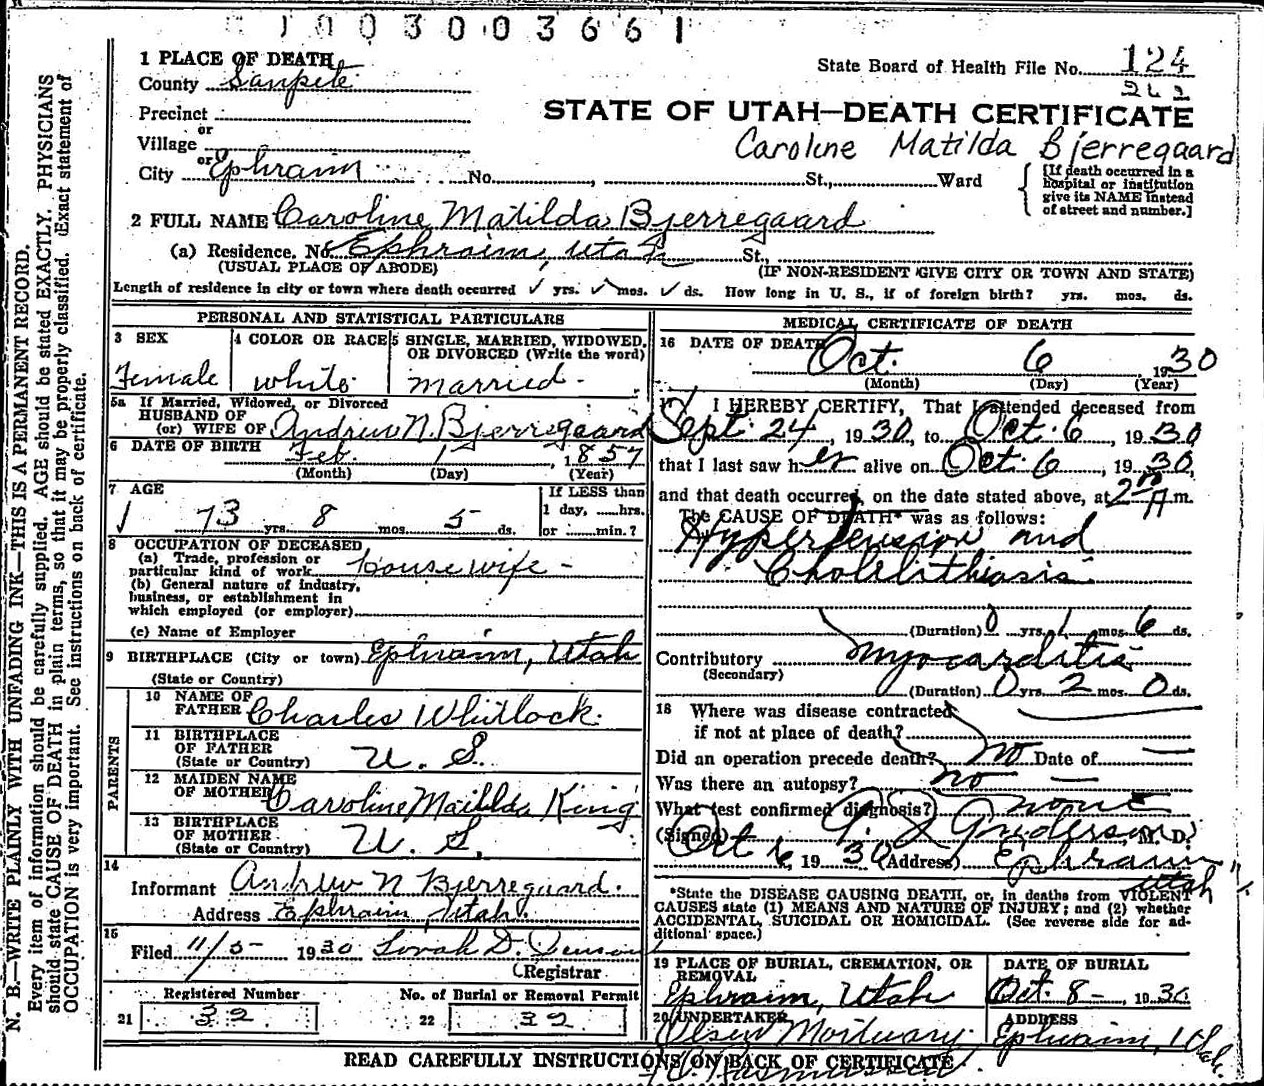 1003003661
1 PLACE OF DEATH
County Sanpete
State Board of Health File No. 124
Precinct
or
Village
or
City Ephraim No. , St., Ward
STATE OF UTAH—DEATH CERTIFICATE
Caroline Matilda Bjerregaard
[If death occurred in a
hospital or institution
give its NAME instead
of street and number.]
2 FULL NAME Caroline Matilda Bjerregaard
(a) Residence, No. Ephraim, Utah St.,
(USUAL PLACE OF ABODE) (IF NON-RESIDENT GIVE CITY OR TOWN AND STATE)
Length of residence in city or town where death occurred ✓ yrs. ✓ mos. ✓ ds. How long in U. S., if of foreign birth? yrs. mos. ds.
PERSONAL AND STATISTICAL PARTICULARS
3 SEX
Female
4 COLOR OR RACE
White
5 SINGLE, MARRIED, WIDOWED,
OR DIVORCED (Write the word)
Married
5a If Married, Widowed, or Divorced
HUSBAND OF
(or) WIFE OF Andrew N. Bjerregaard
6 DATE OF BIRTH
Feb. 1 , 1857
(Month) (Day) (Year)
7 AGE
73 yrs. 8 mos. 5 ds.
If LESS than
1 day, hrs.
or min.?
8 OCCUPATION OF DECEASED
(a) Trade, profession or
particular kind of work housewife -
(b) General nature of industry,
business, or establishment in
which employed (or employer)
(c) Name of Employer
9 BIRTHPLACE (City or town) Ephraim, Utah
(State or Country)
PARENTS
10 NAME OF
FATHER Charles Whitlock.
11 BIRTHPLACE
OF FATHER
(State or Country) U. S.
12 MAIDEN NAME
OF MOTHER Caroline Matilda King
13 BIRTHPLACE
OF MOTHER
(State or Country) U. S.
14
Informant Andrew N Bjerregaard.
Address Ephraim, Utah.
15
Filed 11/5- 1930
Registrar
Registered Number
21 32
No. of Burial or Removal Permit
22 32
MEDICAL CERTIFICATE OF DEATH
16 DATE OF DEATH
Oct. 6 , 1930
(Month) (Day) (Year)
17 I HEREBY CERTIFY, That I attended deceased from
Sept. 24, 1930, to Oct. 6, 1930
that I last saw her alive on Oct. 6, 1930,
and that death occurred, on the date stated above, at 2 A m.
The CAUSE OF DEATH* was as follows:
Hypertension and
Cholelithiasis
(Duration) 0 yrs. 1 mos. 6 ds.
Contributory Myocarditis
(Secondary)
(Duration) 0 yrs. 2 mos. 0 ds.
18 Where was disease contracted
if not at place of death?
Did an operation precede death? no Date of —
Was there an autopsy? no —
What test confirmed diagnosis? none
(Signed) Anderson, M. D.
Oct 6, 1930 (Address) Ephraim
Utah
*State the DISEASE CAUSING DEATH, or, in deaths from VIOLENT
CAUSES state (1) MEANS AND NATURE OF INJURY; and (2) whether
ACCIDENTAL, SUICIDAL OR HOMICIDAL. (See reverse side for ad-
ditional space.)
19 PLACE OF BURIAL, CREMATION, OR
REMOVAL
Ephraim, Utah
DATE OF BURIAL
Oct. 8 -, 1930
20 UNDERTAKER
Olsen Mortuary
ADDRESS
Ephraim, Utah.
READ CAREFULLY INSTRUCTIONS ON BACK OF CERTIFICATE
N. B.—WRITE PLAINLY WITH UNFADING INK—THIS IS A PERMANENT RECORD.
Every item of information should be carefully supplied. AGE should be stated EXACTLY. PHYSICIANS
should state CAUSE OF DEATH in plain terms, so that it may be properly classified. Exact statement of
OCCUPATION is very important. See instructions on back of certificate.